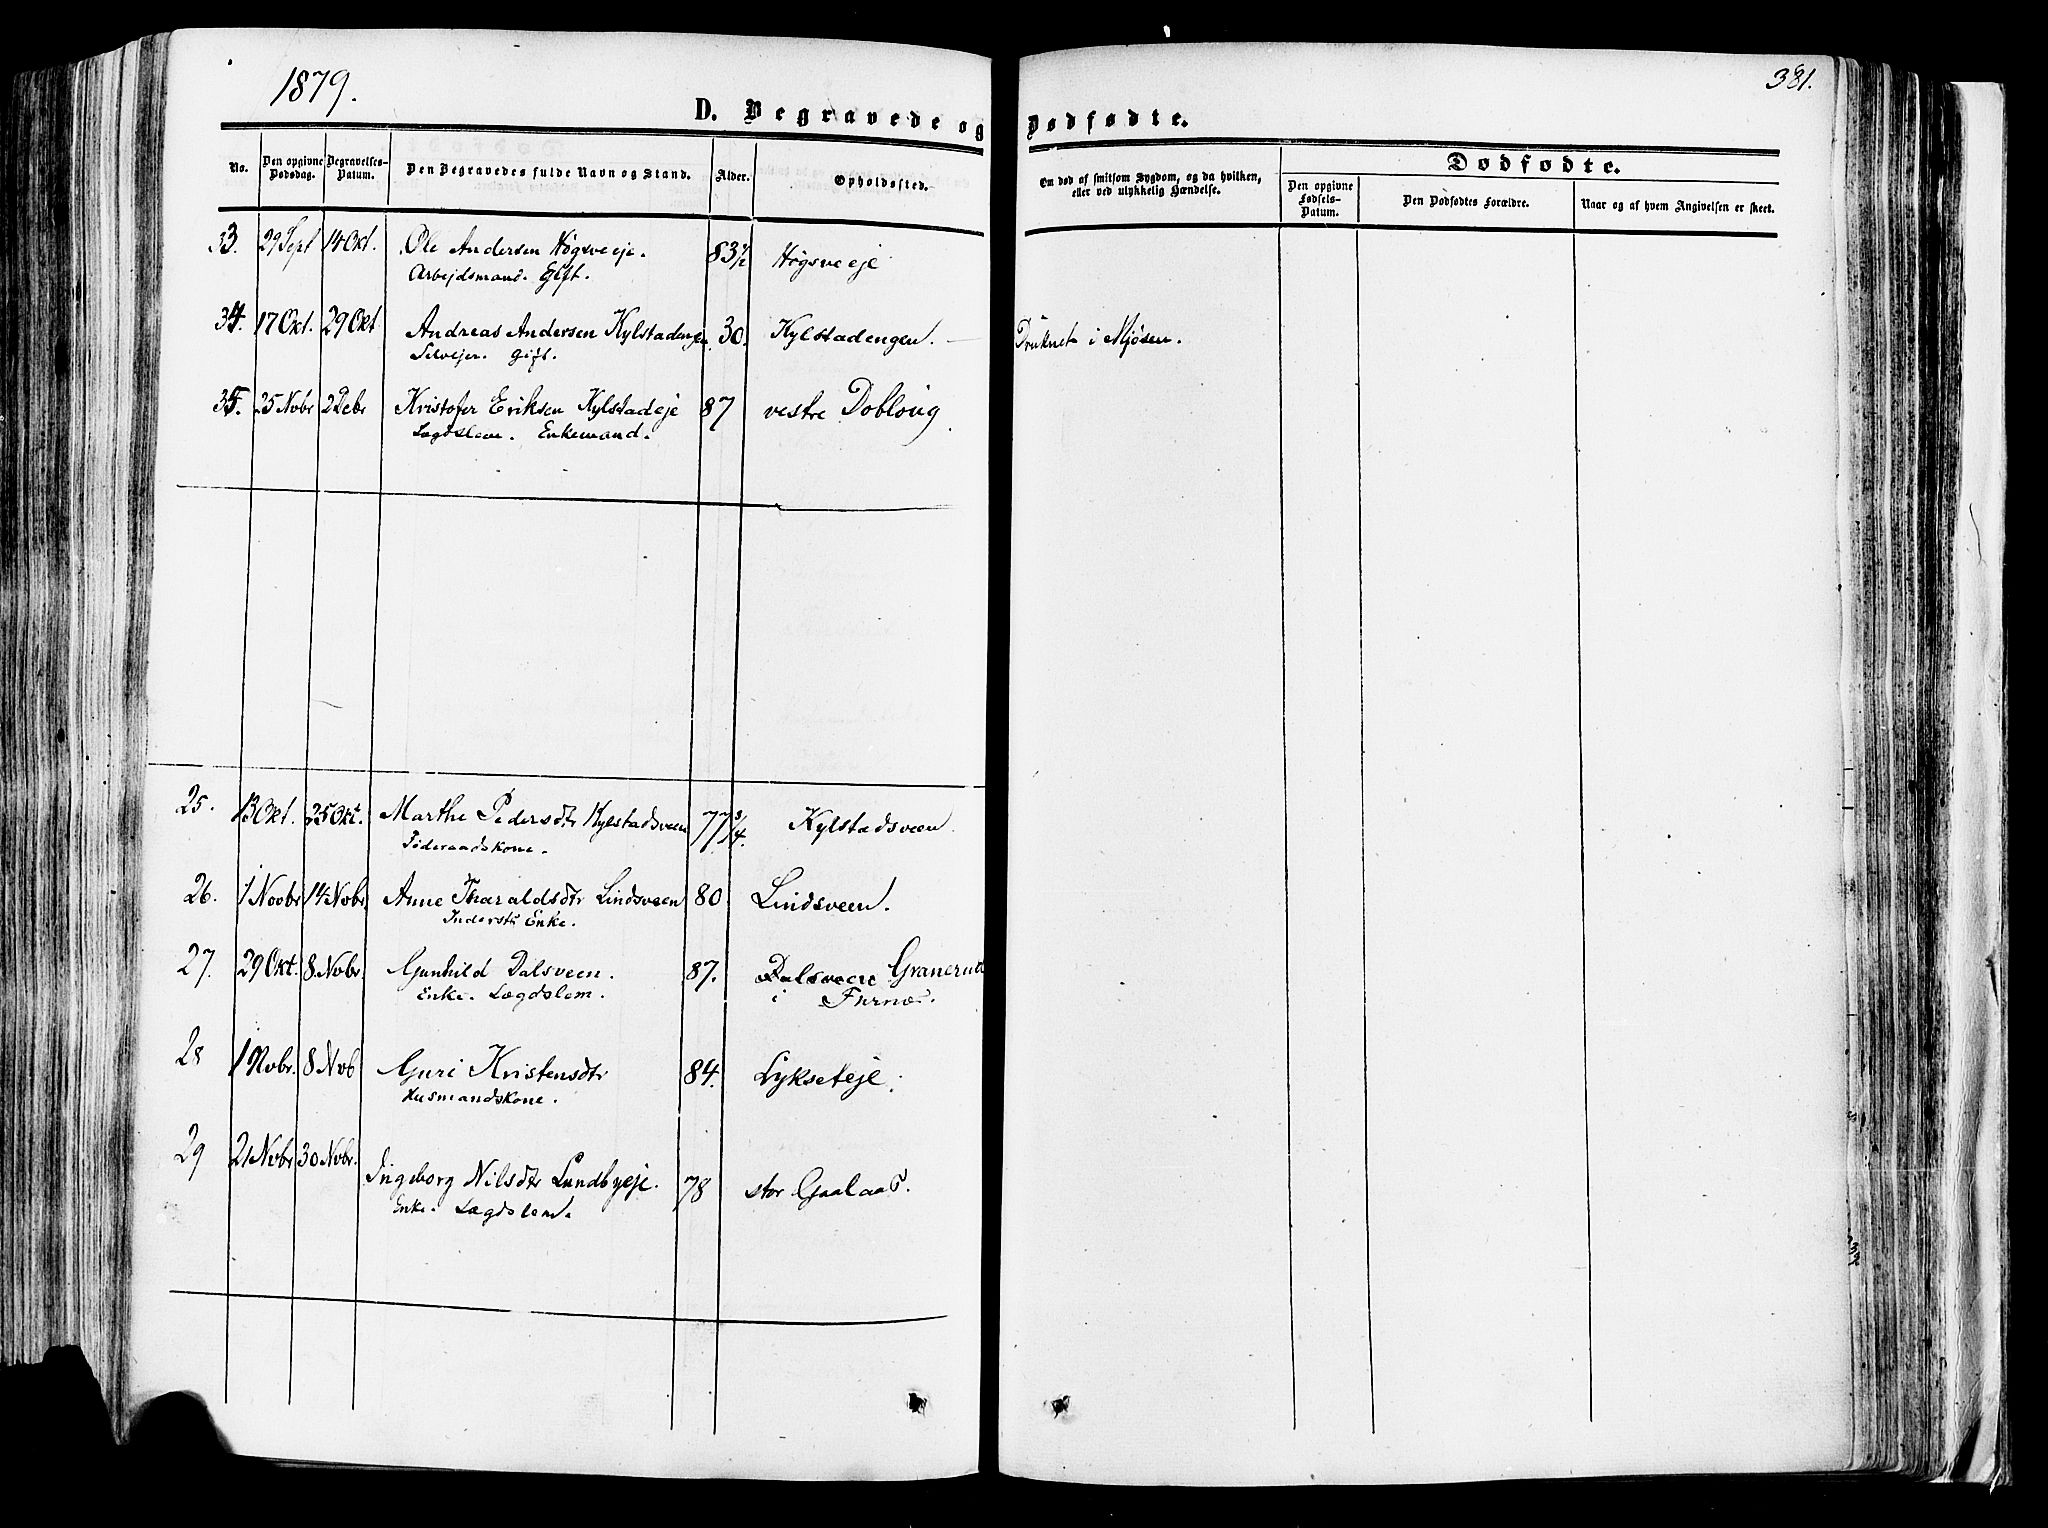 1879.
381.
D. Begravede og Dødfødte.
No.
Den opgivne Dødsdag.
Begravelses-Datum.
Den Begravedes fulde Navn og Stand.
Alder.
Opholdssted.
Om død af smitsom Sygdom, og da hvilken, eller ved ulykkelig Hændelse.
Dødfødte.
Den opgivne Fødsels-Datum.
Den Dødfødtes Forældre.
Naar og af hvem Angivelsen er skeet.
33. 29 Sept 14 Okt. Ole Andersen Høgsveeje. 83½ Høgsveeje
Arbejdsmand. Gift.
34. 17 Okt. 29 Okt Andreas Andersen Kylstadengen 30. Kylstadengen. — Druknet i Mjøsen.
Selvejer. gift.
35. 25 Novbr 2 Debr Kristofer Eriksen Kylstadeje 87 vestre Dobloug.
Lægdslem. Enkemand.
25. 13 Okt. 25 Okt. Marthe Pedersdtr Kylstadsveen 77¾. Kylstadsveen.
Føderaadskone.
26. 1 Novbr 14 Nobr. Anne Tharaldsdtr Lindsveen 80 Lindsveen.
Inderst. Enke.
27. 29 Okt. 8 Nvbr. Gunhild Dalsveen. 87. Dalsveen Granerud
Enke. Lægdslem. i Furnæs.
28 1 Novbr. 8 Nvb Guri Kristensdtr 84. Lykseteje.
Husmandskone.
29 21 Novbr 30 Nvbr. Ingeborg Nilsdtr Lundbyeje. 78 stor Gaalaas.
Enke. Lægdslem.